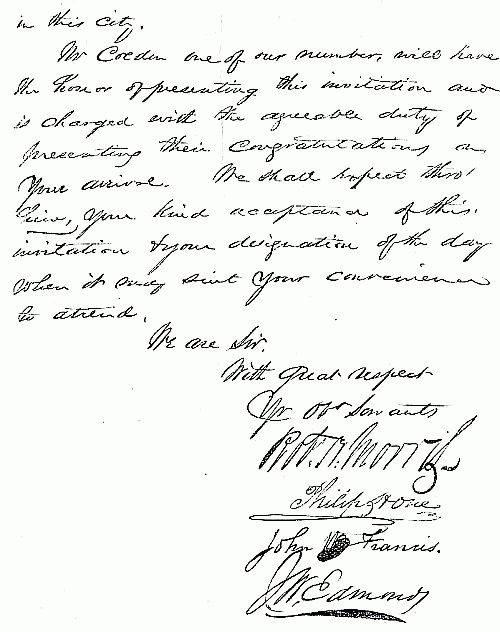 in this city.
Mr Colden one of our number, will have
the honor of presenting this invitation and
is charged with the agreeable duty of
presenting their congratulations on
your arrival. We shall expect thro'
him, your kind acceptance of this
invitation & your designation of the day
when it may suit your convenience
to attend.
We are Sir.
With great respect
Yr Obt Servants
Robt. H. Morris
Philip Hone
John W Francis.
J W. Edmonds